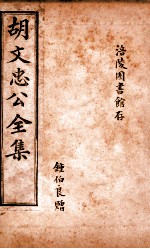 胡文忠公全集
涪陵图書館存
鍾伯良贈